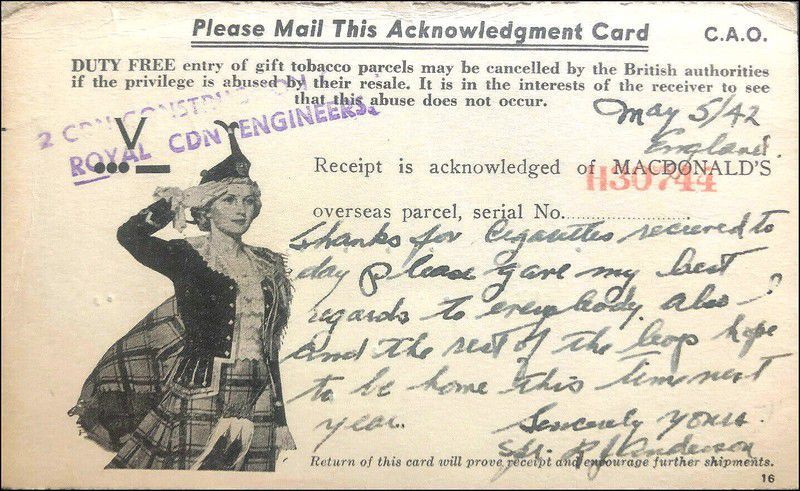 Please Mail This Acknowledgment Card
C.A.O.
DUTY FREE entry of gift tobacco parcels may be cancelled by the British authorities
if the privilege is abused by their resale. It is in the interests of the receiver to see
that this abuse does not occur.
2 CDN CONSTRUCTION
ROYAL CDN ENGINEERS
V
•••—
May 5/42
England
Receipt is acknowledged of MACDONALD'S
H30744
overseas parcel, serial No.
Thanks for Cigarettes received to
day please gave my best
regards to everybody. also
and the rest of the hope
to be home this time next
year.
Sincerely yours.
Anderson
Return of this card will prove receipt and encourage further shipments.
16